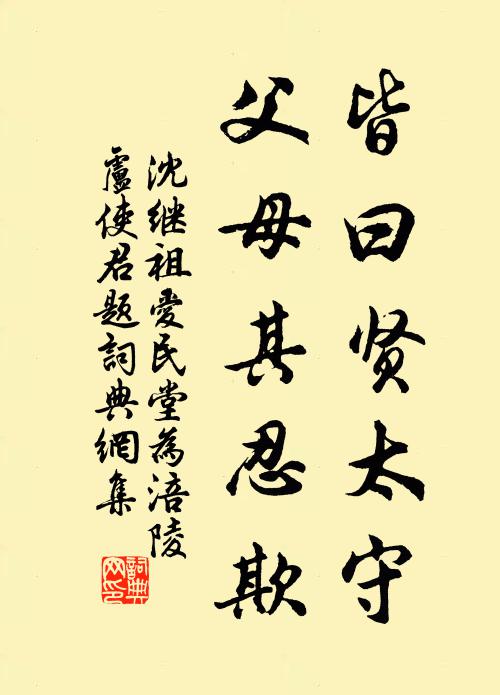 皆曰贤太守
父母其忍欺
沈继祖爱民堂為涪陵
盧使君题詞典網集
詞典网印